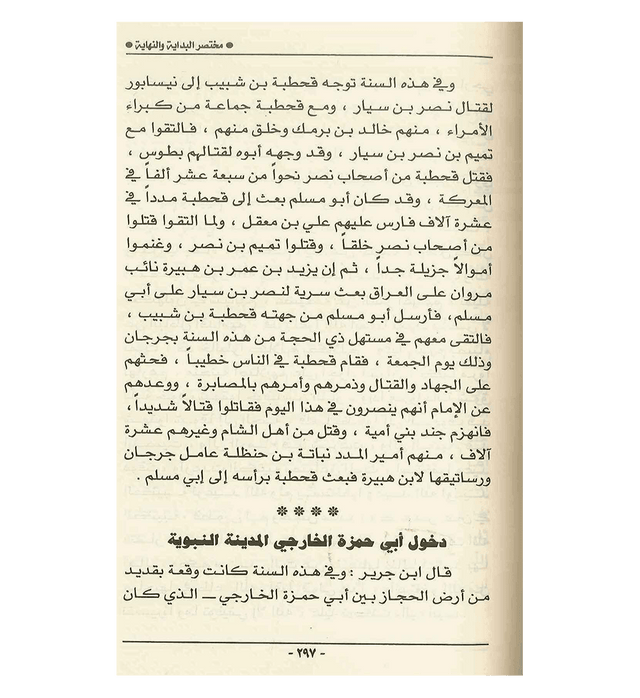 * مختصر البداية والنهاية *
وفي هذه السنة توجه قحطبة بن شبيب إلى نيسابور
لقتال نصر بن سيار ، ومع قحطبة جماعة من كبراء
الأمراء ، منهم خالد بن برمك وخلق منهم ، فالتقوا مع
تميم بن نصر بن سيار ، وقد وجهه أبوه لقتالهم بطوس ،
فقتل قحطبة من أصحاب نصر نحواً من سبعة عشر ألفاً في
المعركة ، وقد كان أبو مسلم بعث إلى قحطبة مدداً في
عشرة آلاف فارس عليهم علي بن معقل ، ولما التقوا قتلوا
من أصحاب نصر خلقاً ، وقتلوا تميم بن نصر ، وغنموا
أموالاً جزيلة جداً ، ثم إن يزيد بن عمر بن هبيرة نائب
مروان على العراق بعث سرية لنصر بن سيار على أبي
مسلم ، فأرسل أبو مسلم من جهته قحطبة بن شبيب ،
فالتقى معهم في مستهل ذي الحجة من هذه السنة بجرجان
وذلك يوم الجمعة ، فقام قحطبة في الناس خطيباً ، فحثهم
على الجهاد والقتال وذمرهم وأمرهم بالمصابرة ، ووعدهم
عن الإمام أنهم ينصرون في هذا اليوم فقاتلوا قتالاً شديداً ،
فانهزم جند بني أمية ، وقتل من أهل الشام وغيرهم عشرة
آلاف ، منهم أمير المدد نباتة بن حنظلة عامل جرجان
ورساتيقها لابن هبيرة فبعث قحطبة برأسه إلى إبي مسلم .
* * * *
دخول أبي حمزة الخارجي المدينة النبوية
قال ابن جرير : وفي هذه السنة كانت وقعة بقديد
من أرض الحجاز بين أبي حمزة الخارجي ــ الذي كان
- ٢٩٧ -